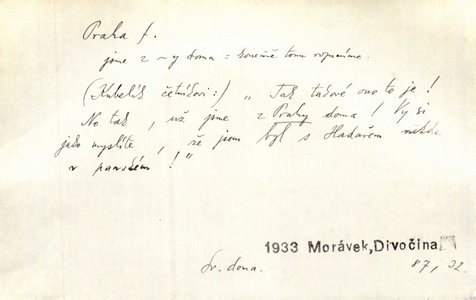 Praha f.
jsme z ~y doma = konečně tomu rozumíme.
(Kubelík četníkovi:) „Tak takové ono to je!
No tak, už jsme z Prahy doma! Vy si
jako myslíte, že jsem byl s Hadačem někde
v panském!"
1933 Morávek, Divočina
Sv. doma. 87, 32